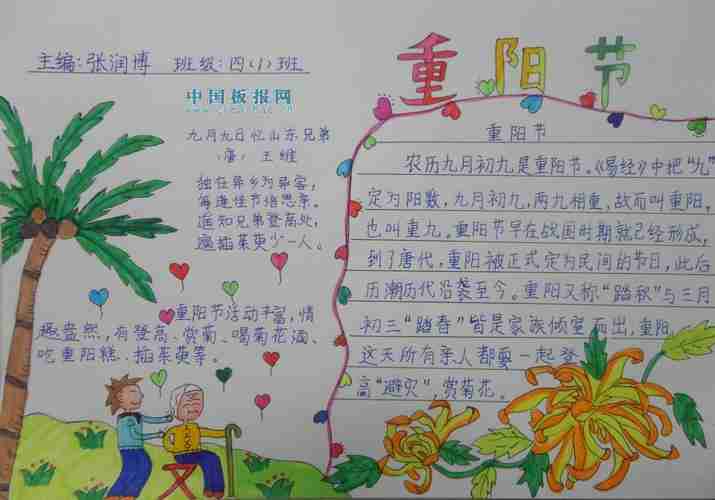 主编:张润博 班级:四(1)班
中国板报网
九月九日忆山东兄弟
(唐) 王维
独在异乡为异客,
每逢佳节倍思亲。
遥知兄弟登高处,
遍插茱萸少一人。
重阳节活动丰富,情
趣盎然,有登高、赏菊、喝菊花酒、
吃重阳糕、插茱萸等。
重阳节
重阳节
农历九月初九是重阳节。《易经》中把“九”
定为阳数,九月初九,两九相重、故而叫重阳,
也叫重九。重阳节早在战国时期就已经形成,
到了唐代,重阳被正式定为民间的节日,此后
历潮历代沿袭至今。重阳又称“踏秋”与三月
初三“踏春”皆是家族倾室而出,重阳
这天所有亲人都要一起登
高“避灾”,赏菊花。